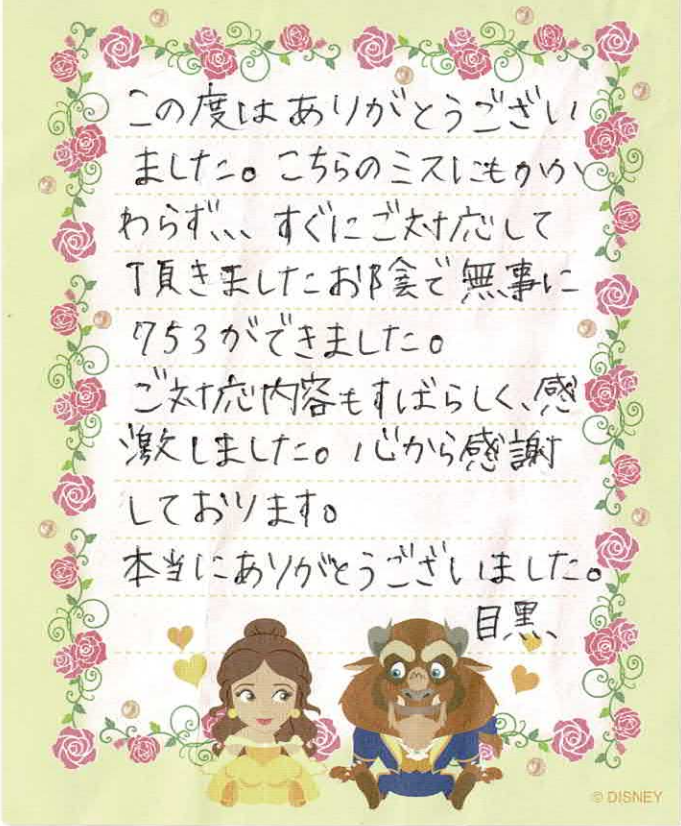 この度はありがとうござい
ました。こちらのミスにもかか
わらず、、、すぐにご対応して
頂きましたお陰で無事に
753ができました。
ご対応内容もすばらしく、感
激しました。心から感謝
しております。
本当にありがとうございました。
目黒
© DISNEY